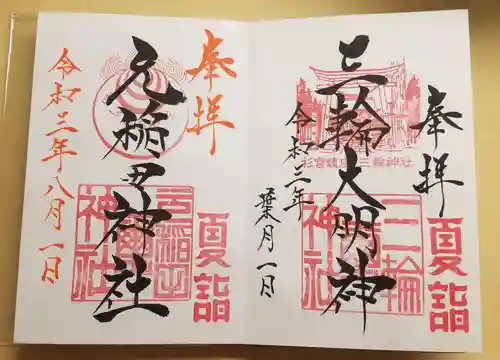 奉拝
三輪大明神
令和三年
葉月一日
夏詣
杉宮鎮座 三輪神社
三輪神社
奉拝
元稲田神社
令和三年八月一日
夏詣